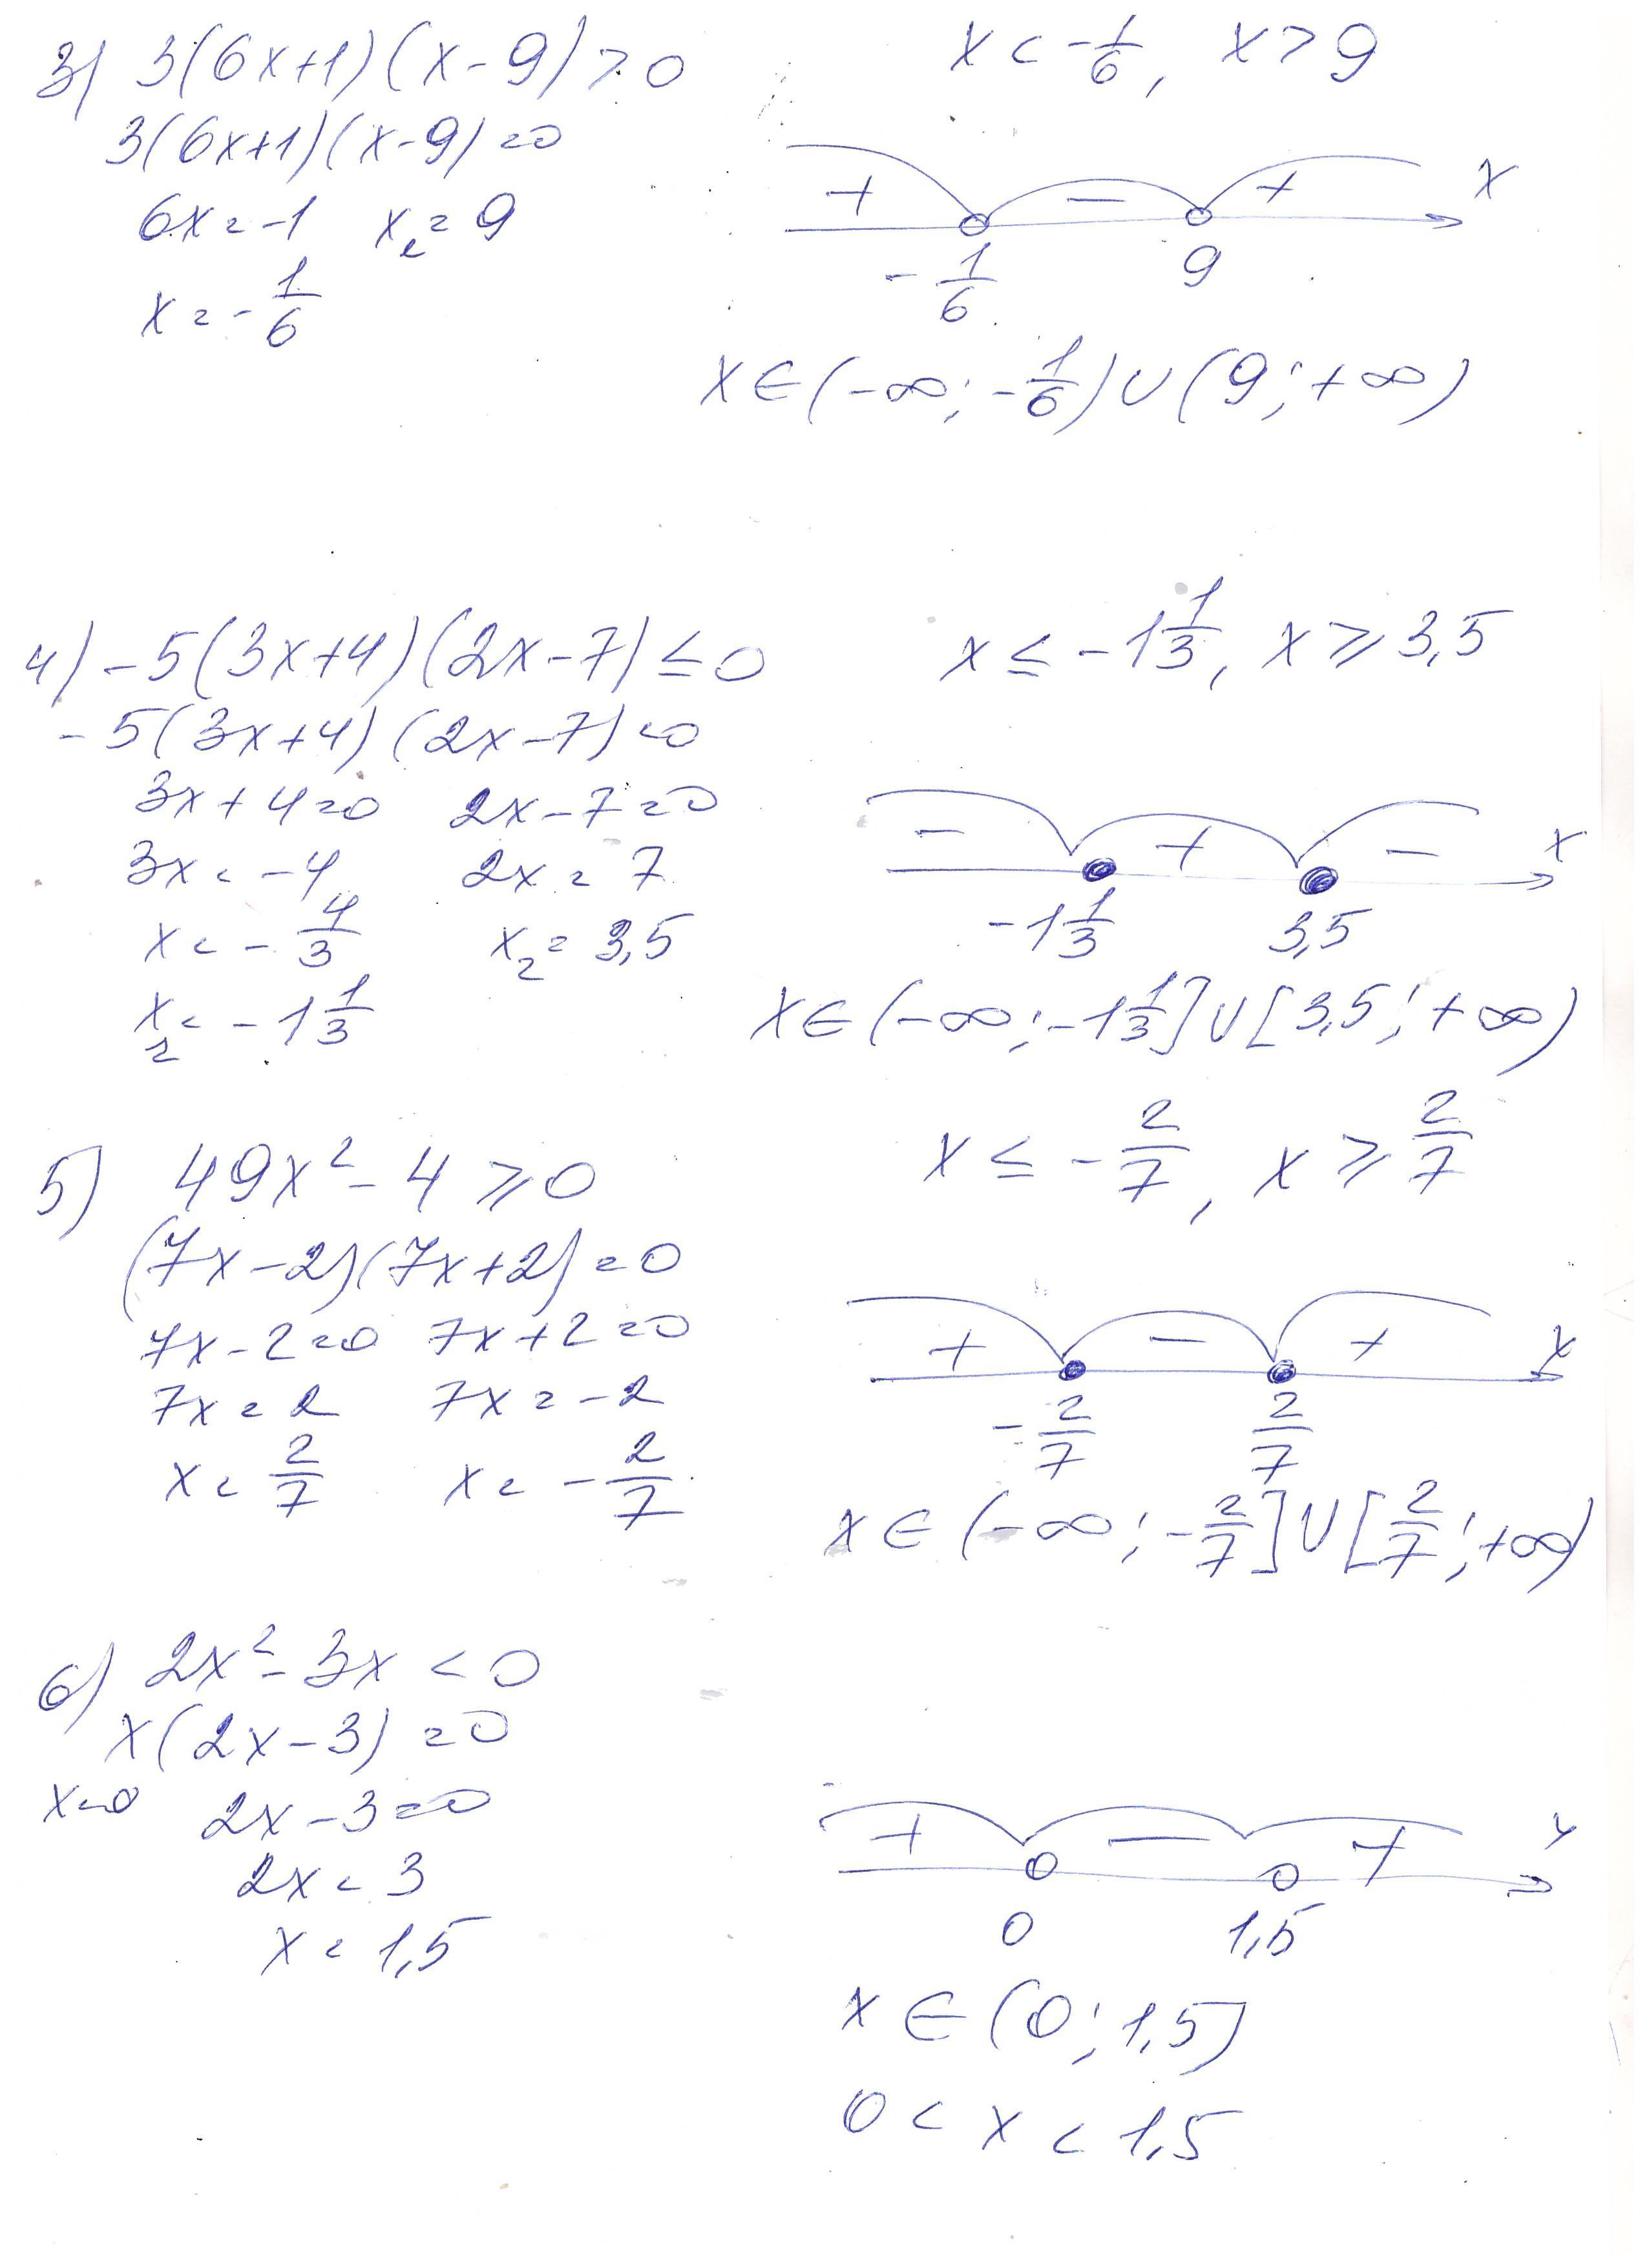 3) 3(6x+1)(x-9)>0
3(6x+1)(x-9)=0
6x=-1 x₂=9
x=-1/6
x<-1/6, x>9
+ - + x
-1/6 9
x∈(-∞;-1/6)∪(9;+∞)
4) -5(3x+4)(2x-7)≤0
-5(3x+4)(2x-7)=0
3x+4=0 2x-7=0
3x=-4 2x=7
x=-4/3 x₂=3,5
x₁=-1 1/3
x≤-1 1/3, x≥3,5
- + - x
-1 1/3 3,5
x∈(-∞;-1 1/3]∪[3,5;+∞)
5) 49x²-4≥0
(7x-2)(7x+2)=0
7x-2=0 7x+2=0
7x=2 7x=-2
x=2/7 x=-2/7
x≤-2/7, x≥2/7
+ - + x
-2/7 2/7
x∈(-∞;-2/7]∪[2/7;+∞)
6) 2x²-3x<0
x(2x-3)=0
x=0 2x-3=0
2x=3
x=1,5
+ - + x
0 1,5
x∈(0;1,5)
0<x<1,5